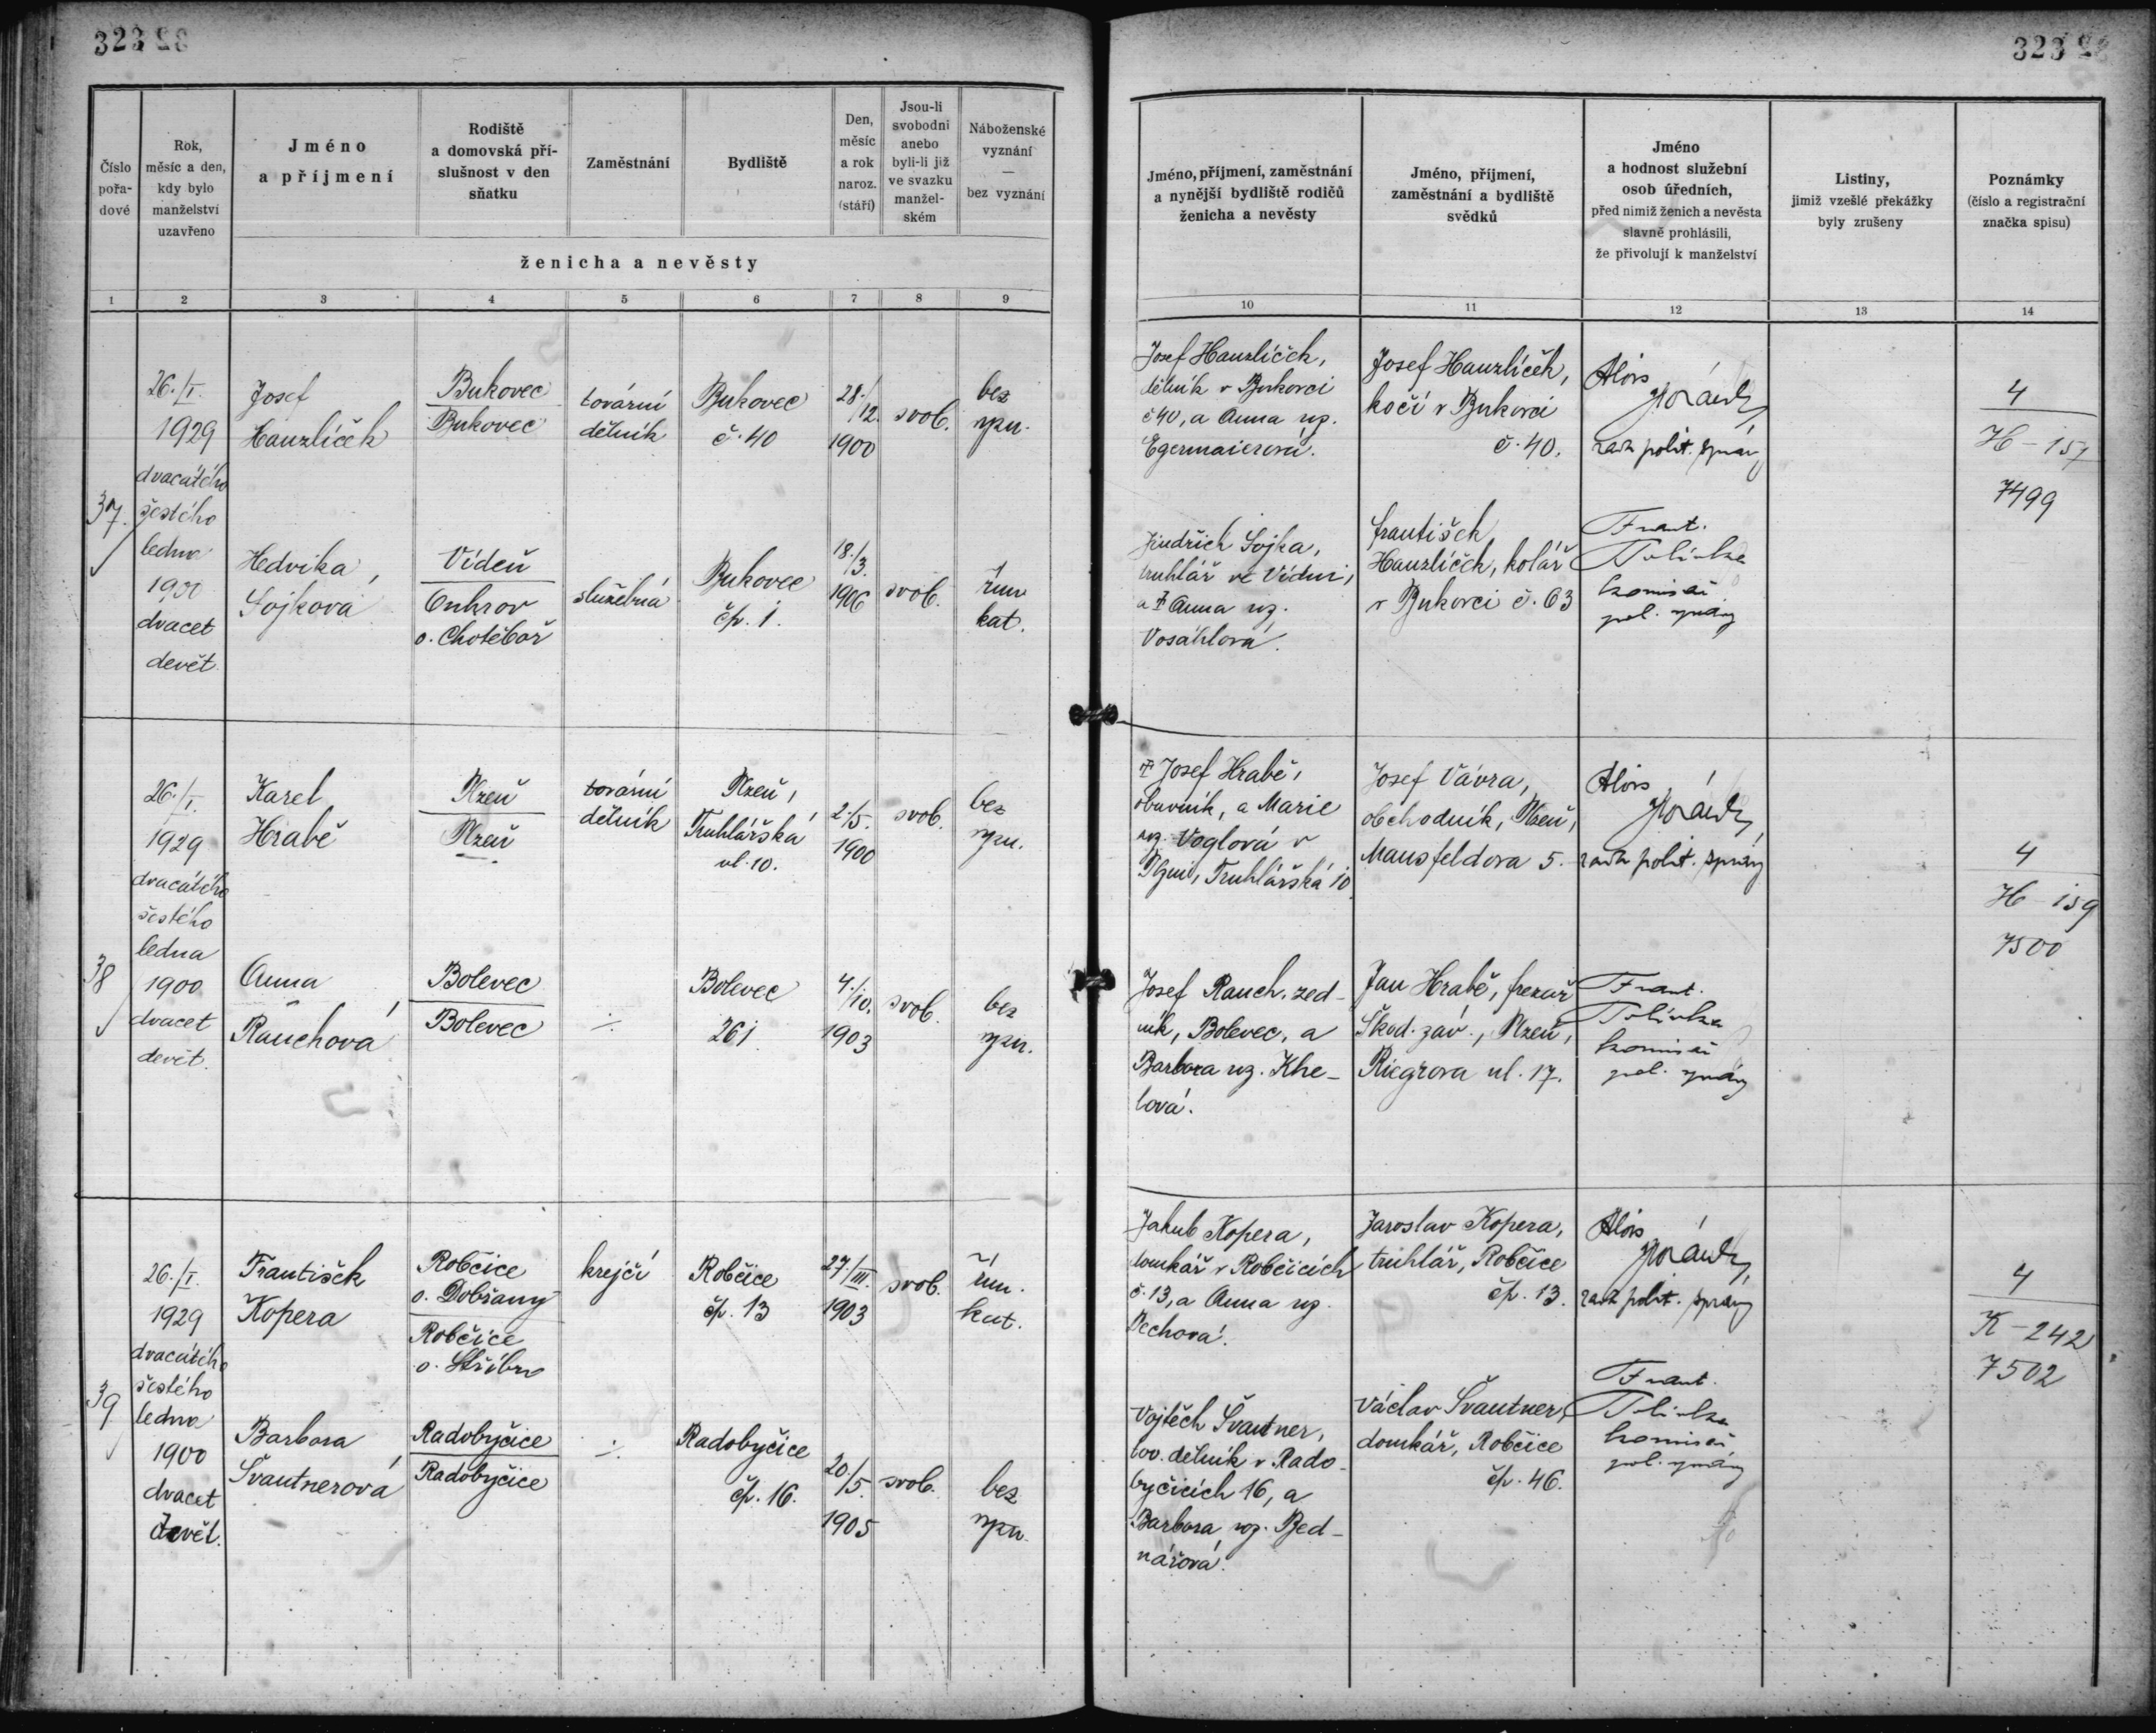 323
323
Číslo
pořa-
dové
Rok,
měsíc a den,
kdy bylo
manželství
uzavřeno
Jméno
a příjmení
Rodiště
a domovská pří-
slušnost v den
sňatku
Zaměstnání
Bydliště
Den,
měsíc
a rok
naroz.
(stáří)
Jsou-li
svobodni
anebo
byli-li již
ve svazku
manžel-
ském
Náboženské
vyznání
—
bez vyznání
ženicha a nevěsty
1 2 3 4 5 6 7 8 9
Jméno, příjmení, zaměstnání
a nynější bydliště rodičů
ženicha a nevěsty
Jméno, příjmení,
zaměstnání a bydliště
svědků
Jméno
a hodnost služební
osob úředních,
před nimiž ženich a nevěsta
slavně prohlásili,
že přivolují k manželství
Listiny,
jimiž vzešlé překážky
byly zrušeny
Poznámky
(číslo a registrační
značka spisu)
10 11 12 13 14
37.
26./I.
1929
dvacátého
šestého
ledna
1900
dvacet
devět
Josef
Hauzlíček
Bukovec
Bukovec
tovární
dělník
Bukovec
č. 40
28./
12.
1900
svob.
bez
vyzn.
Josef Hauzlíček,
dělník v Bukovci
č 40, a Anna roz.
Egermaierová.
Josef Hauzlíček,
kočí v Bukovci
č. 40.
Alois
rada polit. správy
4
H - 157
7499
Hedvika
Sojková
Vídeň
o. Chotěboř
služebná
Bukovec
čp. 1.
18./
3.
1906
svob.
řím
kat.
Jindřich Sojka,
truhlář ve Vídni,
a † Anna roz.
Vosáhlová.
František
Hauzlíček, kolář
v Bukovci č. 63
Frant.
komisař
pol. správy
38
26./I.
1929
dvacátého
šestého
ledna
1900
dvacet
devět.
Karel
Hrabě
Plzeň
Plzeň
tovární
dělník
Plzeň,
Truhlářská
ul. 10.
2./5.
1900
svob.
bez
vyzn.
† Josef Hrabě,
obuvník, a Marie
roz. Voglová v
Plzni, Truhlářská 10
Josef Vávra,
obchodník, Plzeň,
Mansfeldova 5.
Alois
rada polit. správy
4
H - 159
7500
Anna
Rauchová
Bolevec
Bolevec
÷
Bolevec
261
4./
10.
1903
svob.
bez
vyzn.
Josef Rauch, zed-
ník, Bolevec, a
Barbora roz. Khe-
lová.
Jan Hrabě, frezař
Škod. záv., Plzeň,
Riegrova ul. 17.
Frant.
komisař
pol. správy
39
26./I.
1929
dvacátého
šestého
ledna
1900
dvacet
devět.
František
Kopera
Robčice
o. Dobřany
Robčice
o. Stříbro
krejčí
Robčice
čp. 13
27./III.
1903
svob.
řím.
kat.
Jakub Kopera,
domkář v Robčicích
č. 13, a Anna roz.
Pechová.
Jaroslav Kopera,
truhlář, Robčice
čp. 13.
Alois
rada polit. správy
4
K - 242
7502
Barbora
Švautnerová
Radobyčice
Radobyčice
÷
Radobyčice
čp. 16.
20./
5.
1905
svob.
bez
vyzn.
Vojtěch Švautner,
tov. dělník v Rado-
byčicích 16, a
Barbora roz. Bed-
nářová.
Václav Švautner,
domkář, Robčice
čp. 46.
Frant.
komisař
pol. správy